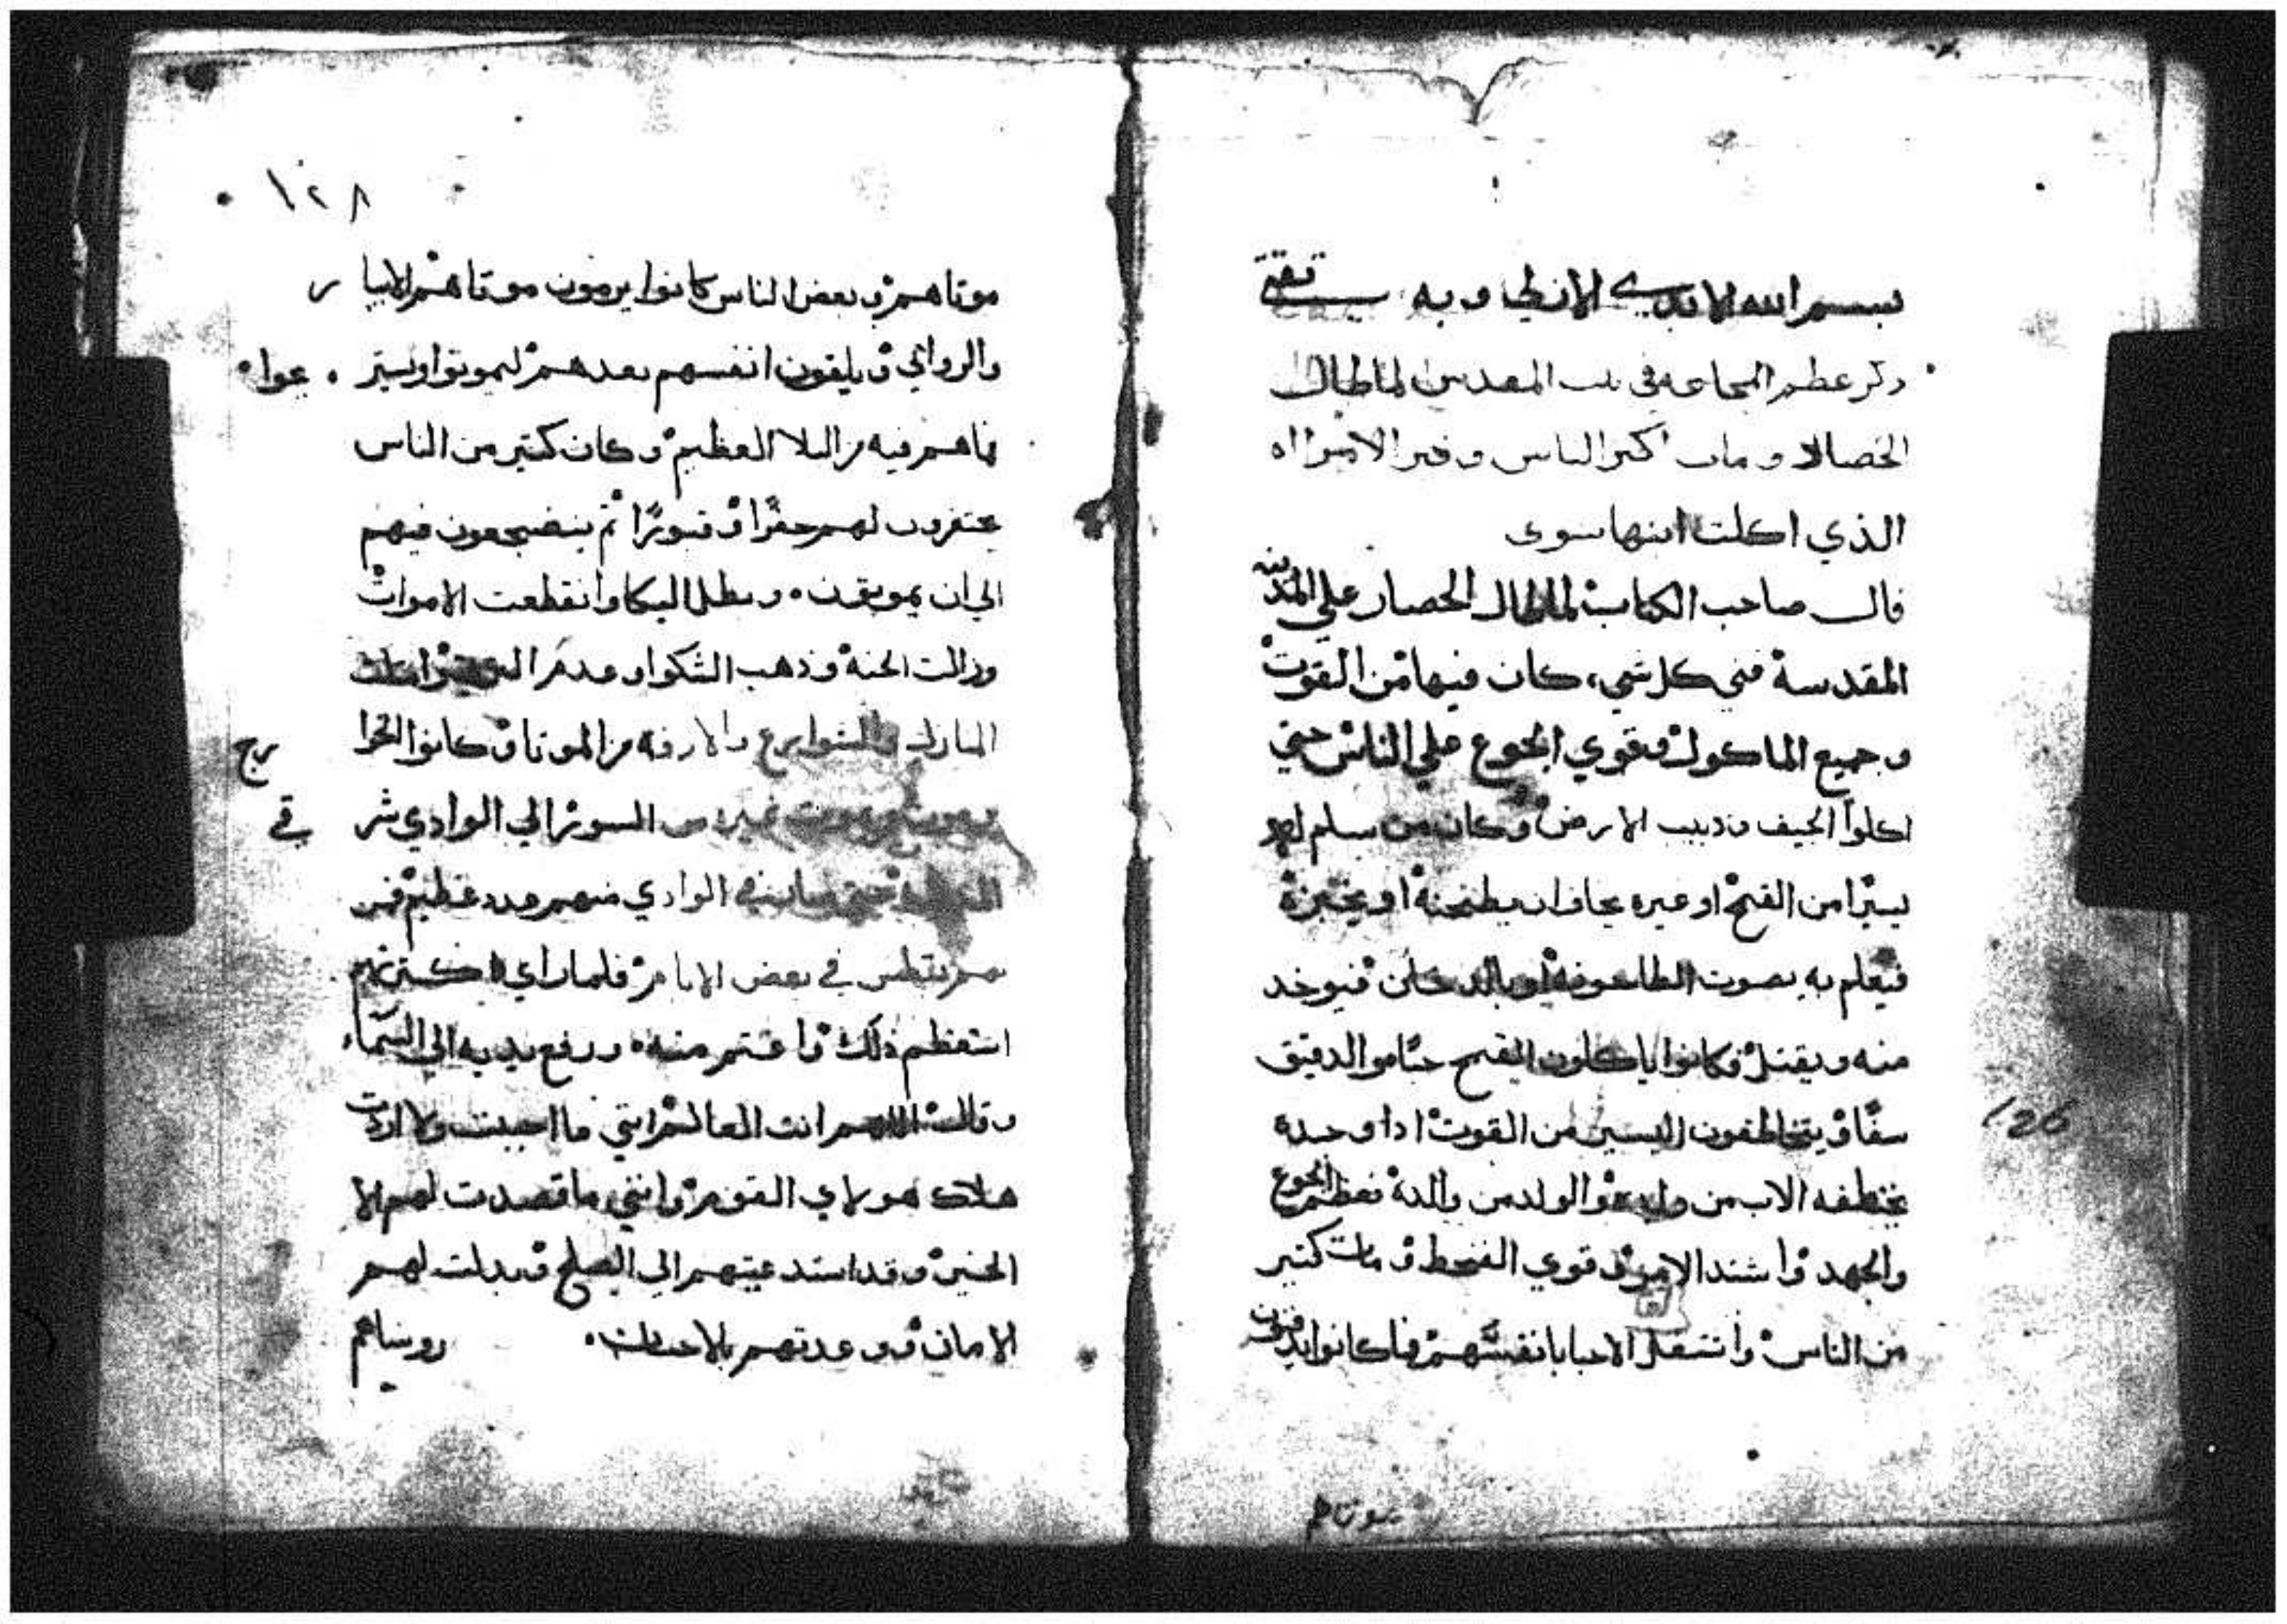 بسم الله الابدي الازلي وبه ثقتي
ذكر عظم المجاعه في بيت المقدس لما طال
الحصار ومات اكثر الناس وخبر الامراه
الذي اكلت ابنها شوي
قال صاحب الكتاب لما طال الحصار علي المدينه
المقدسة فني كل شي كان فيها من القوت
وجميع الماكول وقوي الجوع علي الناس حتي
اكلوا الجيف ودبيب الارض وكان من سلم له
يسيرا من القمح او غيره يخاف ان يطبخة او يخبزة
فيعلم به بصوت الطاحونة او بالدخان فيوخد
منه ويقتل فكانوا ياكلون القمح حبا والدقيق
سفا ويتخاطفون اليسير من القوت ادا وجده
يختطفه الاب من ولده والولد من والدة فعظم الجوع
والجهد واشتد الامر وقوي القحط ومات كتير
من الناس واشتغل الاحيا بانفسهم فما كانوا يدفنون
موتاهم
126
١٢٨
موتاهم وبعض الناس كانوا يرمون موتاهم الابيار
والروابي ويلقون انفسهم بعدهم ليموتوا ويستريحوا
مما هم فيه من البلا العظيم وكان كتير من الناس
يحتفرون لهم حفرا وقبورا ثم ينضجعون فيهم
الي ان يموتون وبطل البكا وانقطعت الاموات
وزالت الحنة وذهب الشكوا وعدم
المنازل والشوارع والازقه من الموتا وكانوا الخوارج
من السور الي الوادي شرقي
الوادي منهم عدد عظيم
في بعض الايام فلما راي كترتهم
استعظم ذلك واغتم منه ورفع يديه الي السماء
وقال اللهم انت العالم انني ما احببت ولا اردت
هلاك هولاي القوم وانني ما قصدت لهم الا
الخير وقد استدعيتهم الي الصلح وبدلت لهم
الامان ووعدتهم بالاحسان